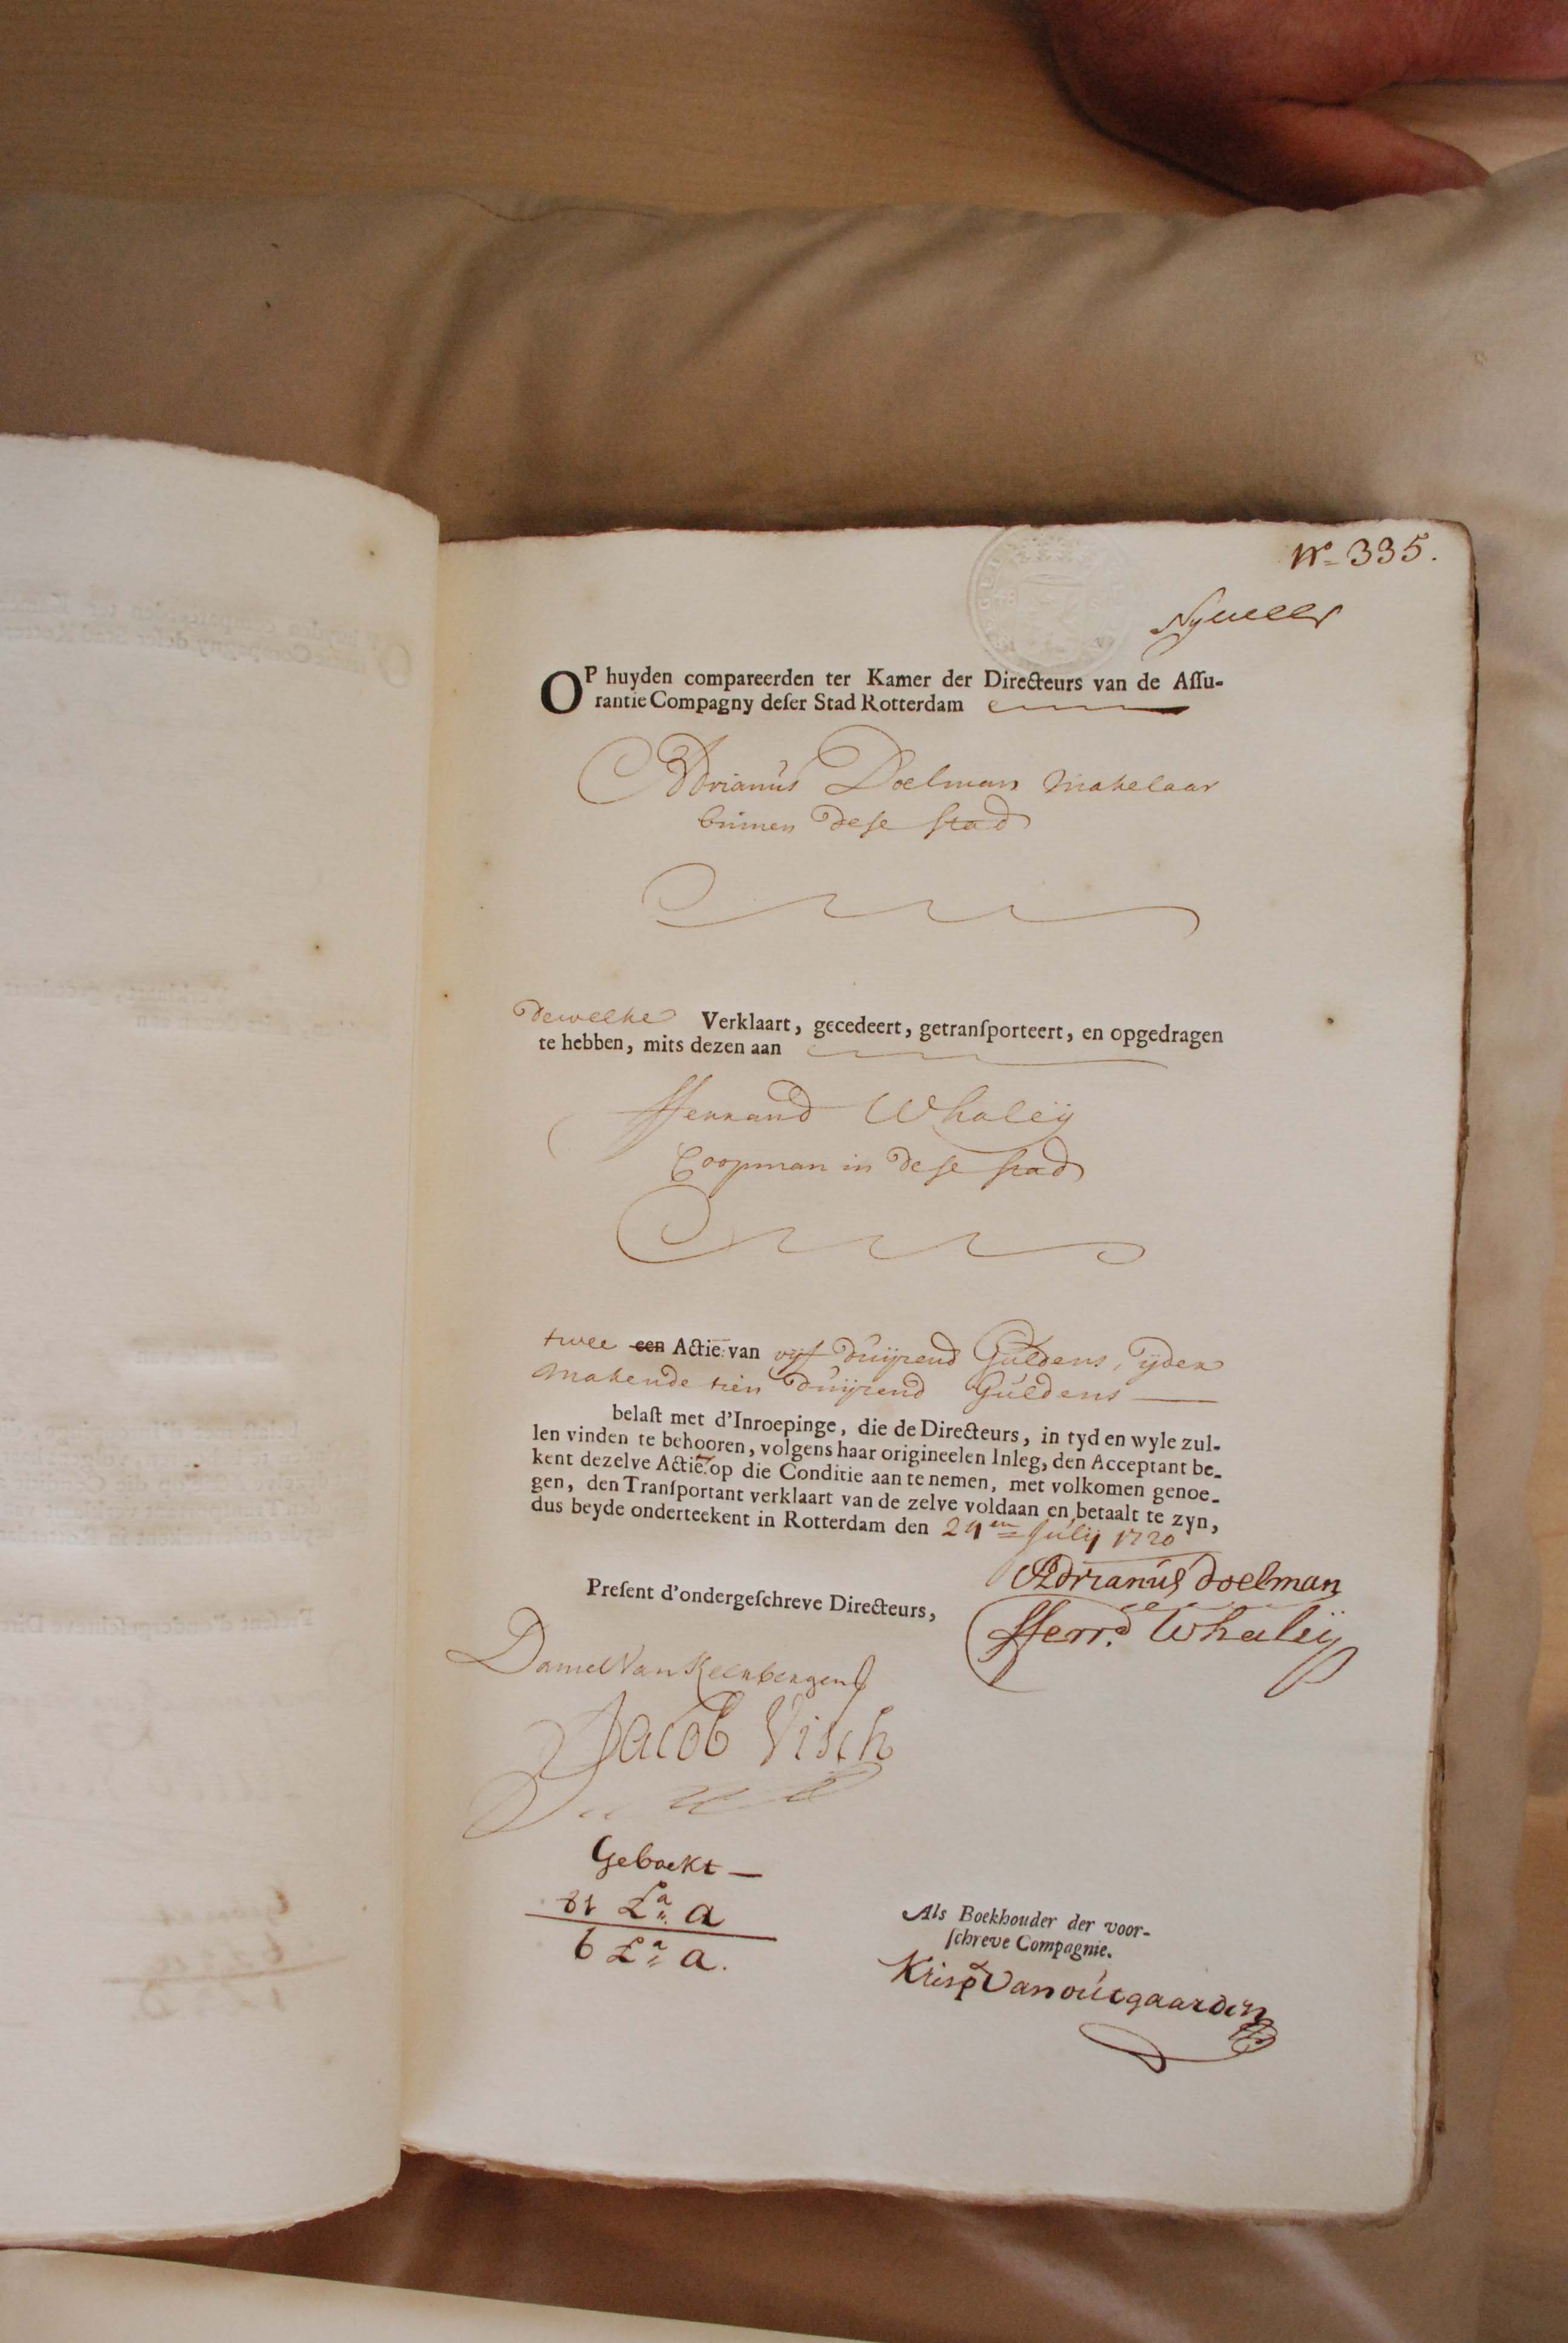 Nº 335.
OP huyden compareerden ter Kamer der Directeurs van de Aſſu-
rantie Compagny deſer Stad Rotterdam
Adrianus Doelman Makelaar
binnen dese stad
dewelke Verklaart, gecedeert, getranſporteert, en opgedragen
te hebben, mits dezen aan
fferrand Whaleÿ
Coopman in dese stad
twee een Actie: van vijf duijsend Guldens, ijder
makende tien duijsend Guldens
belaſt met d'Inroepinge, die de Directeurs, in tyd en wyle zul-
len vinden te behooren, volgens haar origineelen Inleg, den Acceptant be-
kent dezelve Actie: op die Conditie aan te nemen, met volkomen genoe-
gen, den Tranſportant verklaart van de zelve voldaan en betaalt te zyn,
dus beyde onderteekent in Rotterdam den July 1720
Adrianus doelman
Preſent d'ondergeſchreve Directeurs,
fferrd. Whaleÿ
Jacob Visch
Geboekt
81 La. a
6 La. a.
Als Boekhouder der voor-
ſchreve Compagnie.
Krisp Van outgaarden